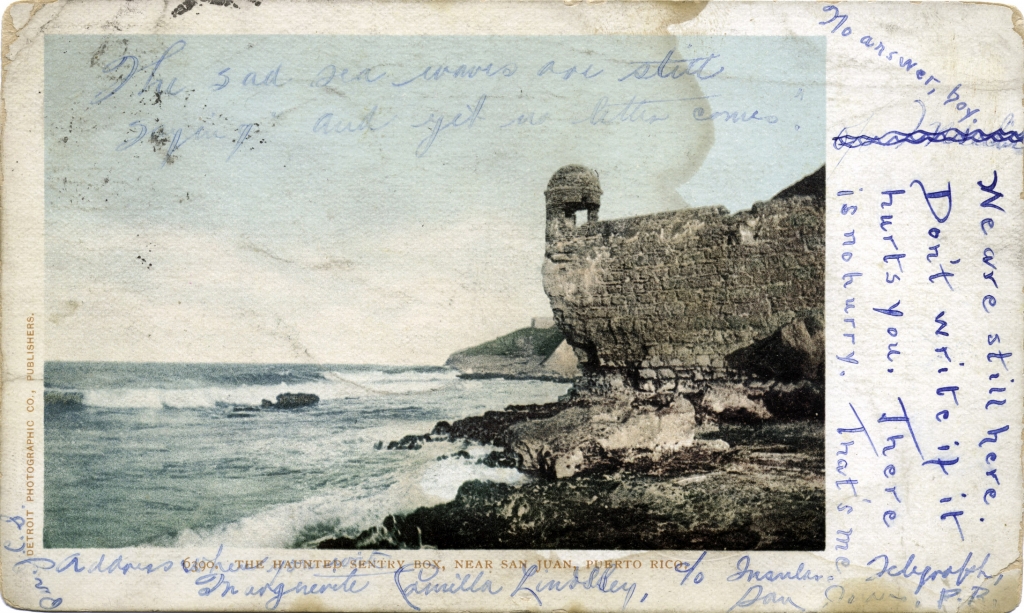 The sad sea waves are still
and yet no letter comes"
No answer, boy.
We are still here.
Don't write if it
hurts you. There
is no hurry. That's me
DETROIT PHOTOGRAPHIC CO., PUBLISHERS.
6399. THE HAUNTED SENTRY BOX, NEAR SAN JUAN, PUERTO RICO.
Address when
Marguerite Camilla Lindsley,
c/o Insular Telegraph,
San Juan, P.R.